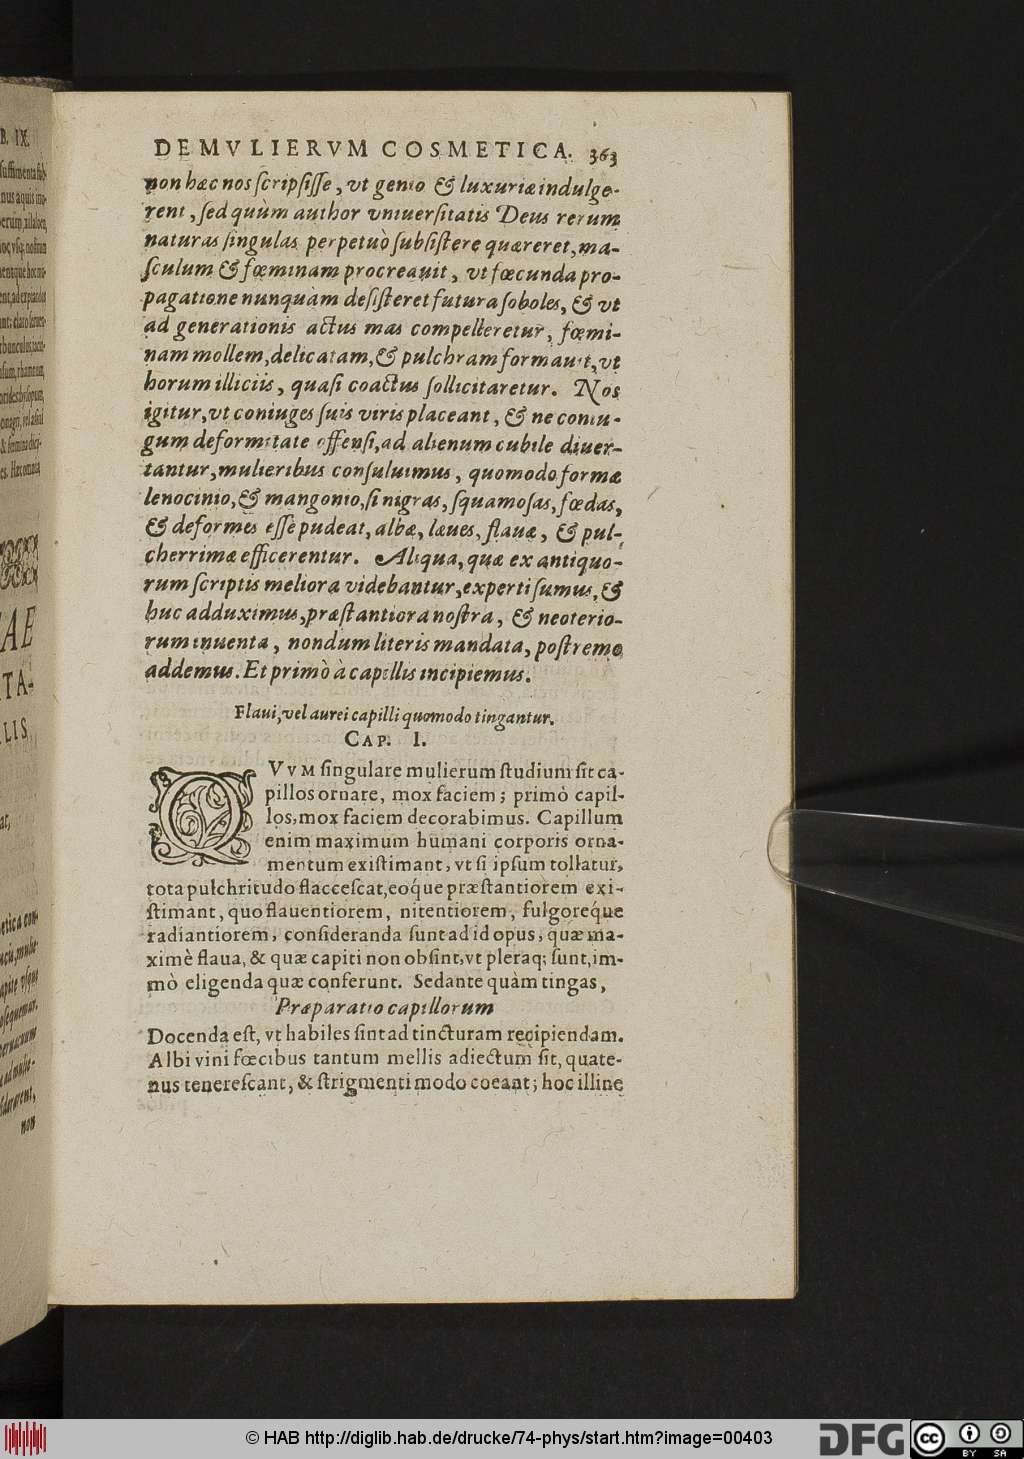 DE MVLIERVM COSMETICA. 363
non hæc nos scripsisse, vt genio & luxuriæ indulge-
rent, sed quùm author vniuersitatis Deus rerum
naturas singulas perpetuò subsistere quæreret, ma-
sculum & fœminam procreauit, vt fœcunda pro-
pagatione nunquàm desisteret futura soboles, & vt
ad generationis actus mas compelleretur, fœmi-
nam mollem, delicatam, & pulchram formauit, vt
horum illiciis, quasi coactus sollicitaretur. Nos
igitur, vt coniuges suis viris placeant, & ne coniu-
gum deformitate offensi, ad alienum cubile diuer-
tantur, mulieribus consuluimus, quomodo formæ
lenocinio, & mangonio, si nigras, squamosas, fœdas,
& deformes esse pudeat, albæ, læues, flauæ, & pul-
cherrimæ efficerentur. Aliqua, quæ ex antiquo-
rum scriptis meliora videbantur, experti sumus, &
huc adduximus, præstantiora nostra, & neoterio-
rum inuenta, nondum literis mandata, postremo
addemus. Et primò à capillis incipiemus.
Flaui, vel aurei capilli quomodo tingantur.
CAP. I.
QVVM singulare mulierum studium sit ca-
pillos ornare, mox faciem; primò capil-
los, mox faciem decorabimus. Capillum
enim maximum humani corporis orna-
mentum existimant, vt si ipsum tollatur,
tota pulchritudo flaccescat, eóque præstantiorem exi-
stimant, quo flauentiorem, nitentiorem, fulgoréque
radiantiorem, consideranda sunt ad id opus, quæ ma-
ximè flaua, & quæ capiti non obsint, vt pleraq; sunt, im-
mò eligenda quæ conferunt. Sed antequàm tingas,
Præparatio capillorum
Docenda est, vt habiles sint ad tincturam recipiendam.
Albi vini fœcibus tantum mellis adiectum sit, quate-
nus tenerescant, & strigmenti modo coeant; hoc illine
© HAB http://diglib.hab.de/drucke/74-phys/start.htm?image=00403
DFG
cc BY SA